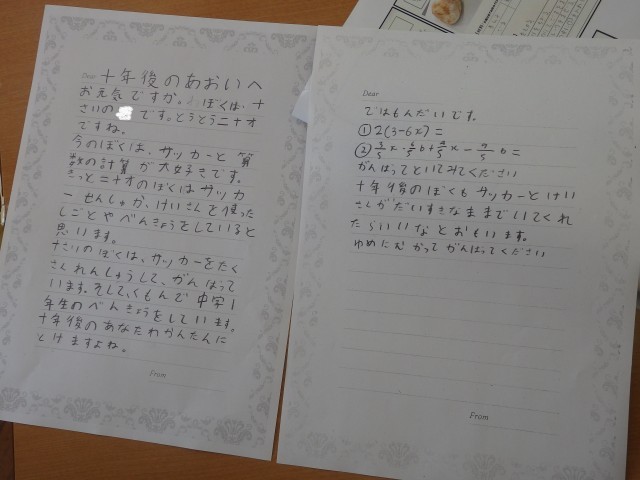 Dear 十年後のあおいへ
お元気ですか。ぼくは、十
さいの です。とうとう二十才
ですね。
今のぼくは、サッカーと算
数の計算が大好きです。
きっと二十才のぼくはサッカ
ーせんしゅか、けいさんを使った
しごとやべんきょうをしていると
思います。
十さいのぼくは、サッカーをたく
さんれんしゅうして、がんばって
います。そして、くもんで中学1
年生のべんきょうをしています。
十年後のあなたわかんたんに
とけますよね。
From
Dear
ではもんだいです。
①2(3-6x)=
② b=
がんばってといてみてください
十年後のぼくもサッカーとけい
さんがだいすきなままでいてくれ
たらいいなとおもいます。
ゆめにむかってがんばってください
From